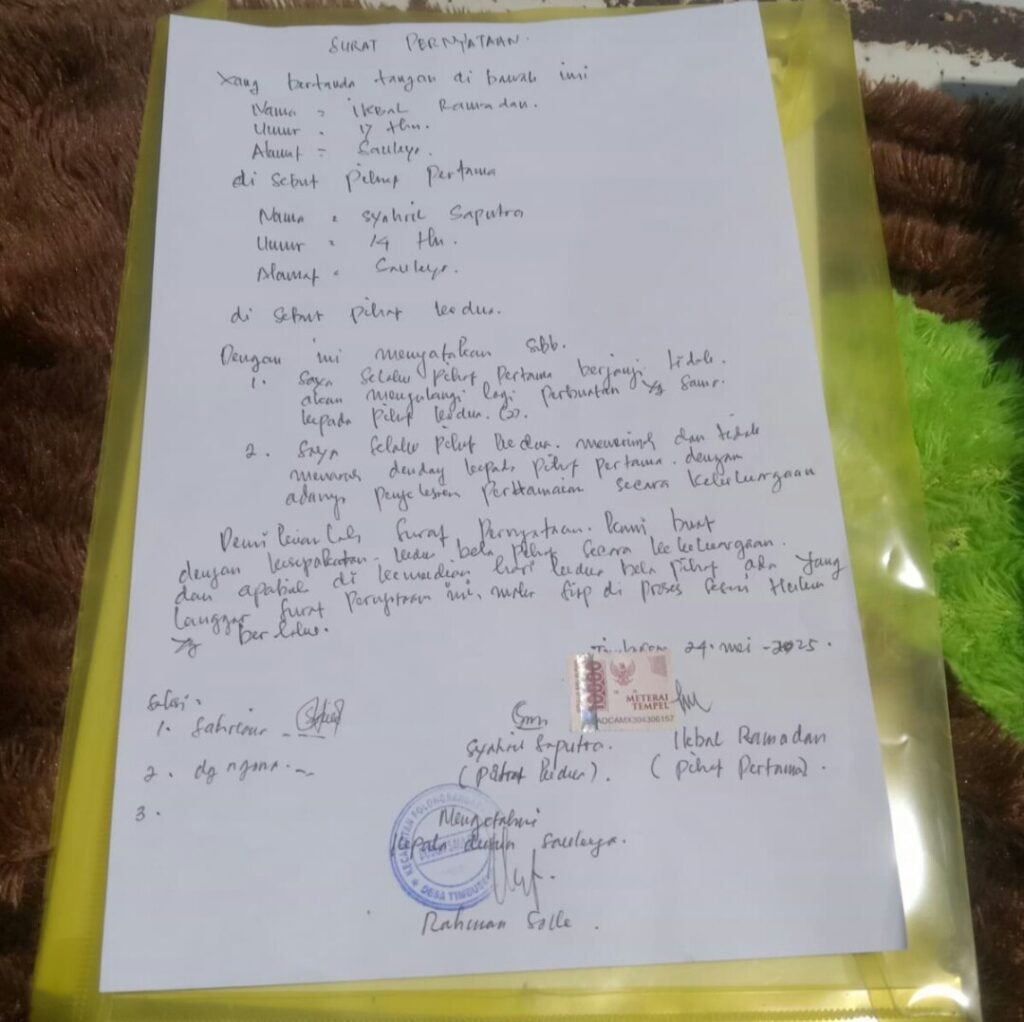 SURAT PERNYATAAN.
Yang bertanda tangan di bawah ini
Nama = Ikbal Ramadan.
Umur = 17 thn.
Alamat = Sauleya.
di sebut pihak pertama
Nama = Syahril Saputra
Umur = 14 thn.
Alamat = Sauleya.
di sebut pihak kedua.
Dengan ini menyatakan sbb.
1. Saya selaku pihak pertama berjanji tidak
akan mengulangi lagi perbuatan yg sama
kepada pihak kedua.
2. Saya selaku pihak kedua menerima dan tidak
dendam kepada pihak pertama. dengan
adanya penyelesaian perdamaian secara kekeluargaan
Demikianlah surat pernyataan. kami buat
dengan kesepakatan kedua bela pihak secara kekeluargaan.
dan apabila di kemudian hari kedua bela pihak ada yang
langgar surat pernyataan ini, maka siap di proses sesuai Hukum
yg berlaku.
24. mei - 2025.
Saksi =
1.
2. dg ngona.
3.
10000
METERAI
TEMPEL
Syahril Saputra.
(pihak kedua).
Ikbal Ramadan
(pihak pertama).
Mengetahui
kepala dusun Sauleya.
KECAMATAN
DESA
Rahman Solle.